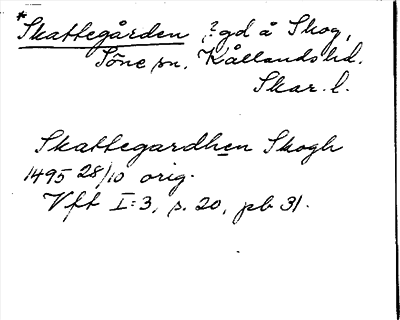 *Skattegården ? gd å Skog,
Söne sn. Kållands hd.
Skar. l.
Skattegardhen Skogh
1495 28/10 orig.
Vft I:3, s. 20, pb 31.